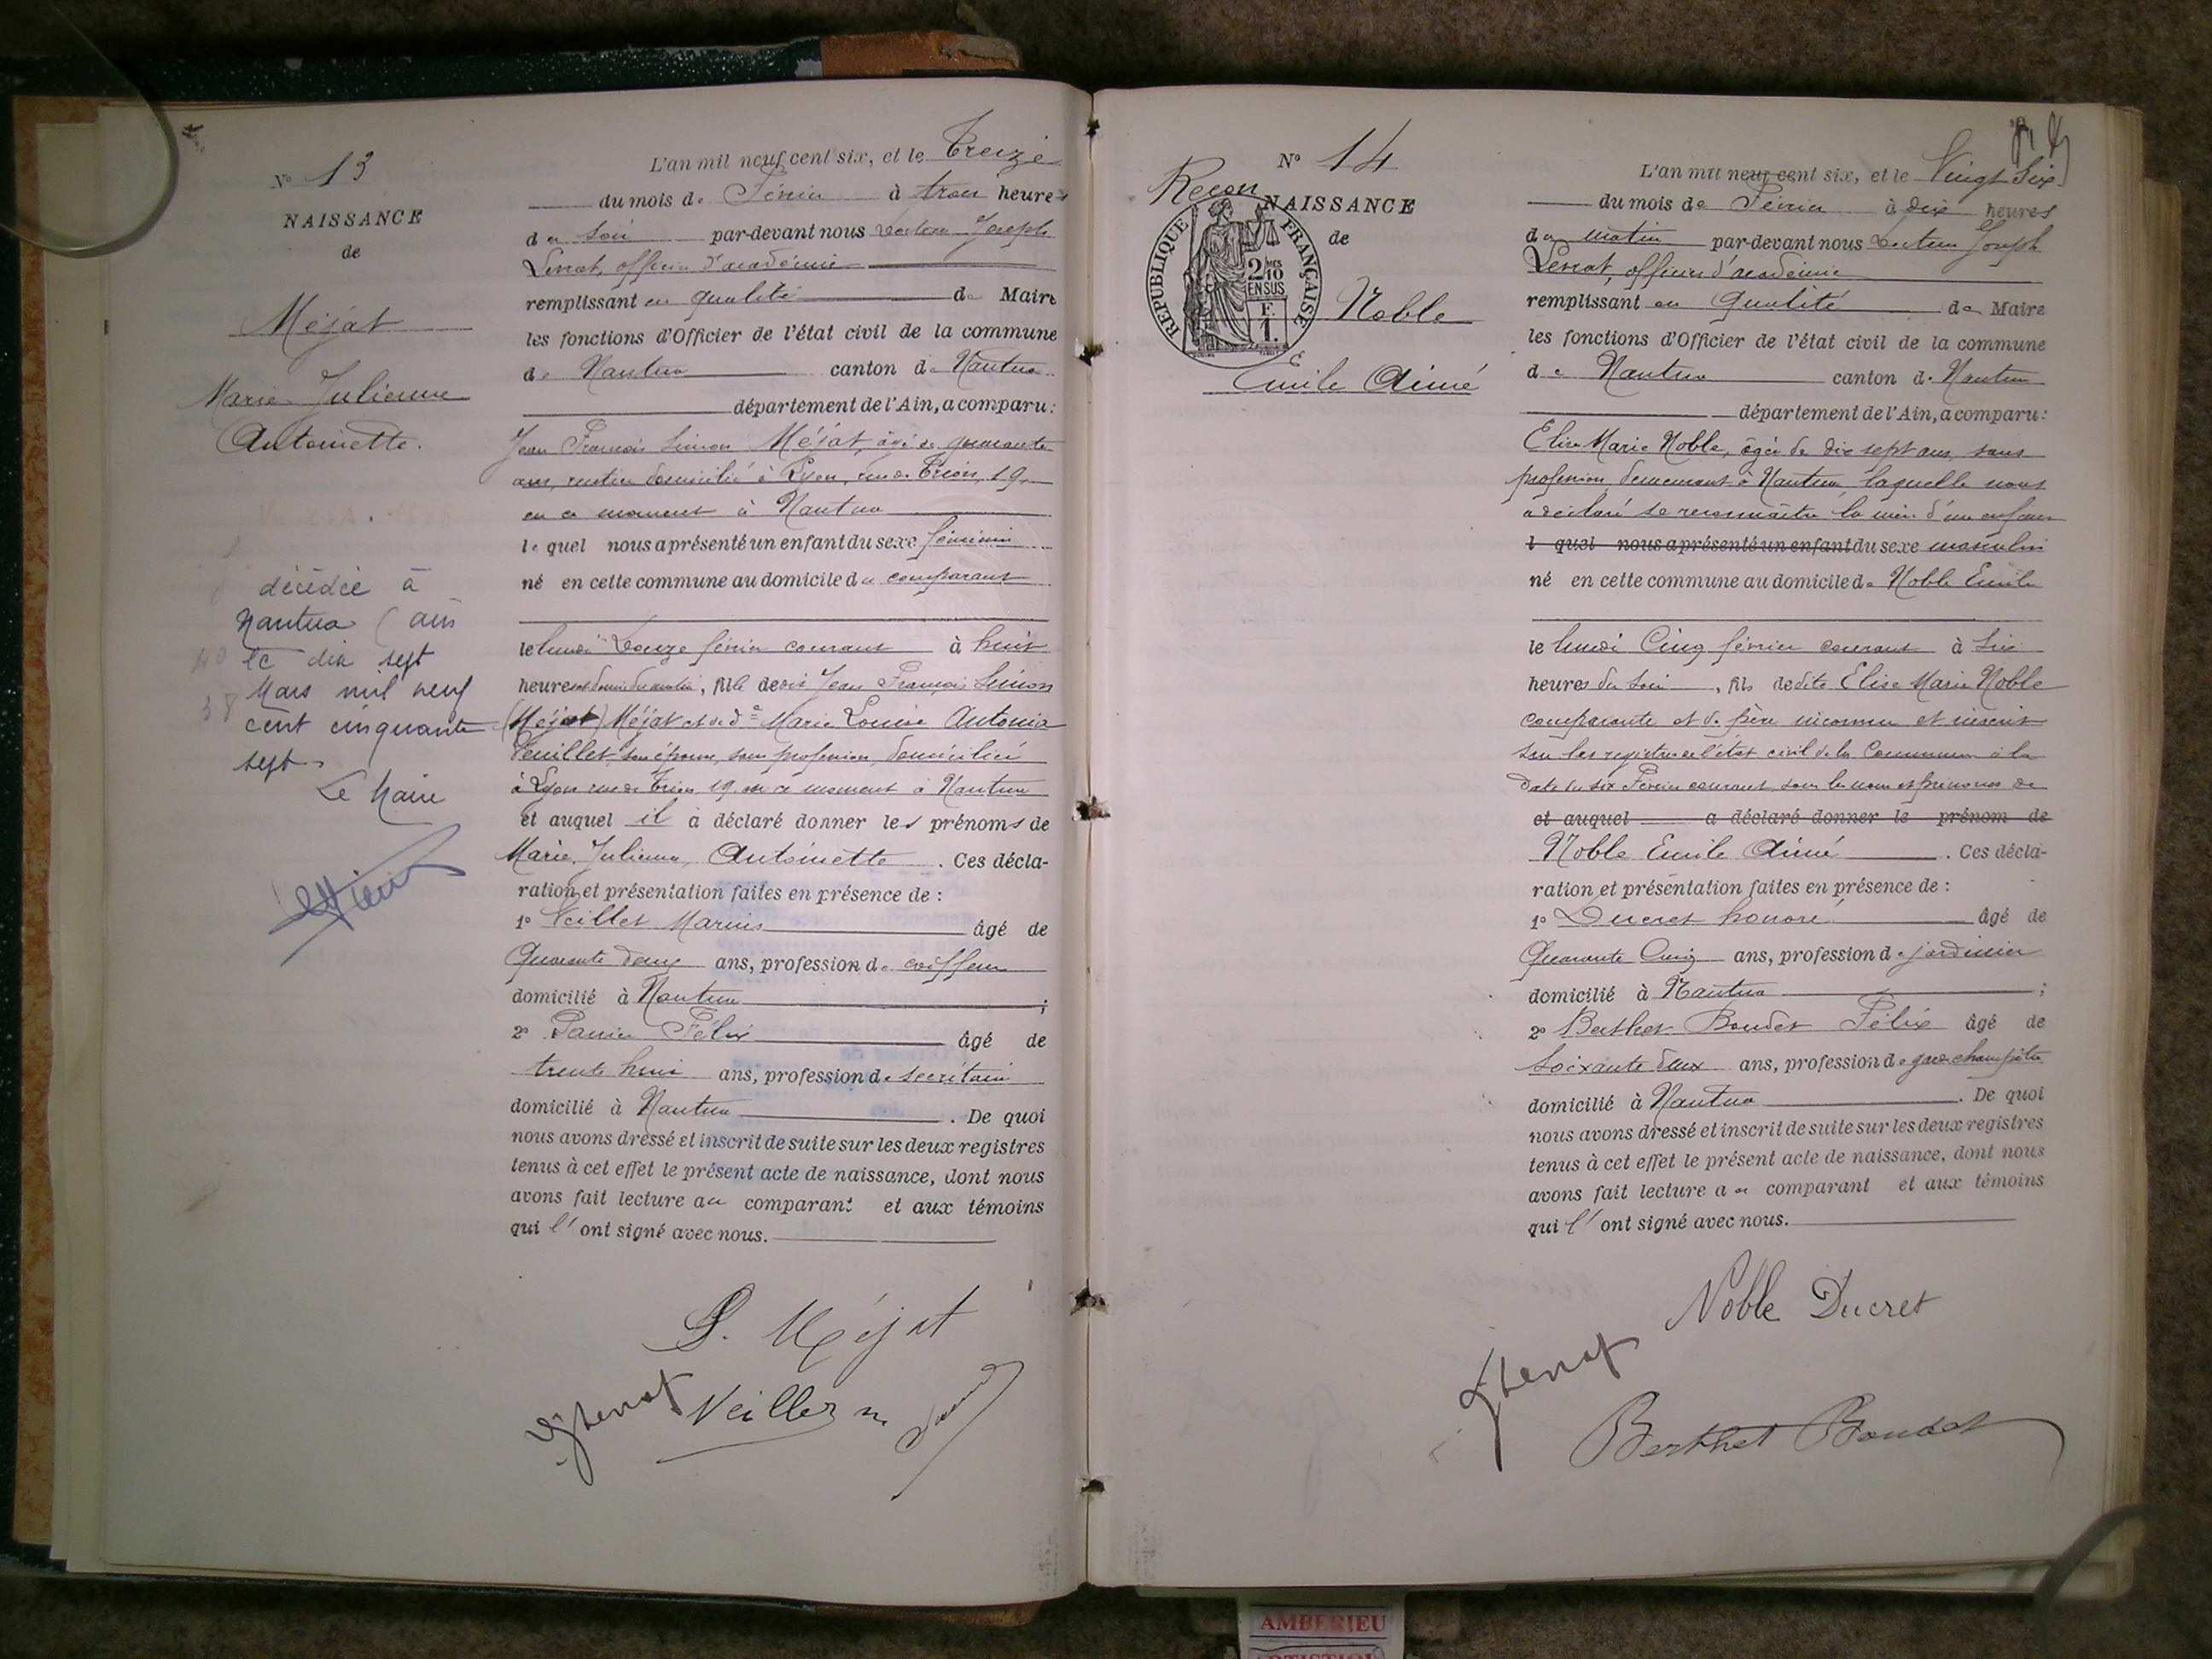 N° 13
NAISSANCE
de
Méjat
Marie Julienne
Antoinette.
décédée à
Nantua (ain
le dix sept
Mars mil neuf
cent cinquante
sept.
Le Maire
L'an mil neuf cent six, et le Treize
du mois de Février à trois heures
du soir par-devant nous Docteur Joseph
Levrat, officier d'académie
remplissant en qualité de Maire
les fonctions d'Officier de l'état civil de la commune
de Nantua canton de Nantua
département de l'Ain, a comparu:
Jean François Simon Méjat, âgé de quarante
ans, rentier domicilié à Lyon, rue de Trion, 19,
en ce moment à Nantua
lequel nous a présenté un enfant du sexe féminin
né en cette commune au domicile du comparant
le lundi Douze février courant à huit
heures et demie du matin, fille de Jean François Simon
(Méjat) Méjat et de de Marie Louise Antonia
Veuillet son épouse, sans profession, domiciliée
à Lyon rue de Trion 19 en ce moment à Nantua
et auquel il a déclaré donner les prénoms de
Marie, Julienne, Antoinette. Ces décla-
ration et présentation faites en présence de :
1° Veillet Marius âgé de
Quarante deux ans, profession de coiffeur
domicilié à Nantua ;
2° Félix âgé de
trente huit ans, profession de secrétaire
domicilié à Nantua. De quoi
nous avons dressé et inscrit de suite sur les deux registres
tenus à cet effet le présent acte de naissance, dont nous
avons fait lecture au comparant et aux témoins
qui l'ont signé avec nous.
S. Méjat
Veillet m
N° 14
Recon
NAISSANCE
de
REPUBLIQUE FRANÇAISE
2/10 EN SUS
F. 1.
Noble
Emile Aimé
L'an mil neuf cent six, et le Vingt Six
du mois de Février à dix heures
du matin par-devant nous Docteur Joseph
Levrat, officier d'académie
remplissant en qualité de Maire
les fonctions d'Officier de l'état civil de la commune
de Nantua canton de Nantua
département de l'Ain, a comparu:
Elise Marie Noble, âgée de dix sept ans, sans
profession, demeurant à Nantua laquelle nous
a déclaré se reconnaître la mère d'un enfant
l quel nous a présenté un enfant du sexe masculin
né en cette commune au domicile de Noble Emile
le lundi Cinq février courant à Six
heures du soir, fils de dite Elise Marie Noble
comparante et de père inconnu et inscrit
sur les registres de l'état civil de la Commune à la
date du six Février courant, sous les nom et prénoms de
et auquel a déclaré donner le prénom de
Noble Emile Aimé. Ces décla-
ration et présentation faites en présence de :
1° Ducret honoré âgé de
Quarante Cinq ans, profession de jardinier
domicilié à Nantua ;
2° Berthet Boudet Félix âgé de
Soixante deux ans, profession de garde champêtre
domicilié à Nantua. De quoi
nous avons dressé et inscrit de suite sur les deux registres
tenus à cet effet le présent acte de naissance, dont nous
avons fait lecture a comparant et aux témoins
qui l'ont signé avec nous.
Noble Ducret
Berthet Boudet
AMBERIEU